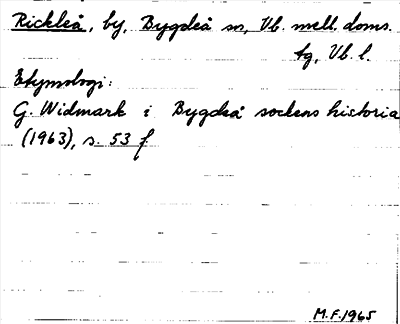 Rickleå, by, Bygdeå sn, Vb. mell. doms.
tg, Vb. l.
Etymologi:
G. Widmark i Bygdeå sockens historia
(1963), s. 53 f
M.F. 1965